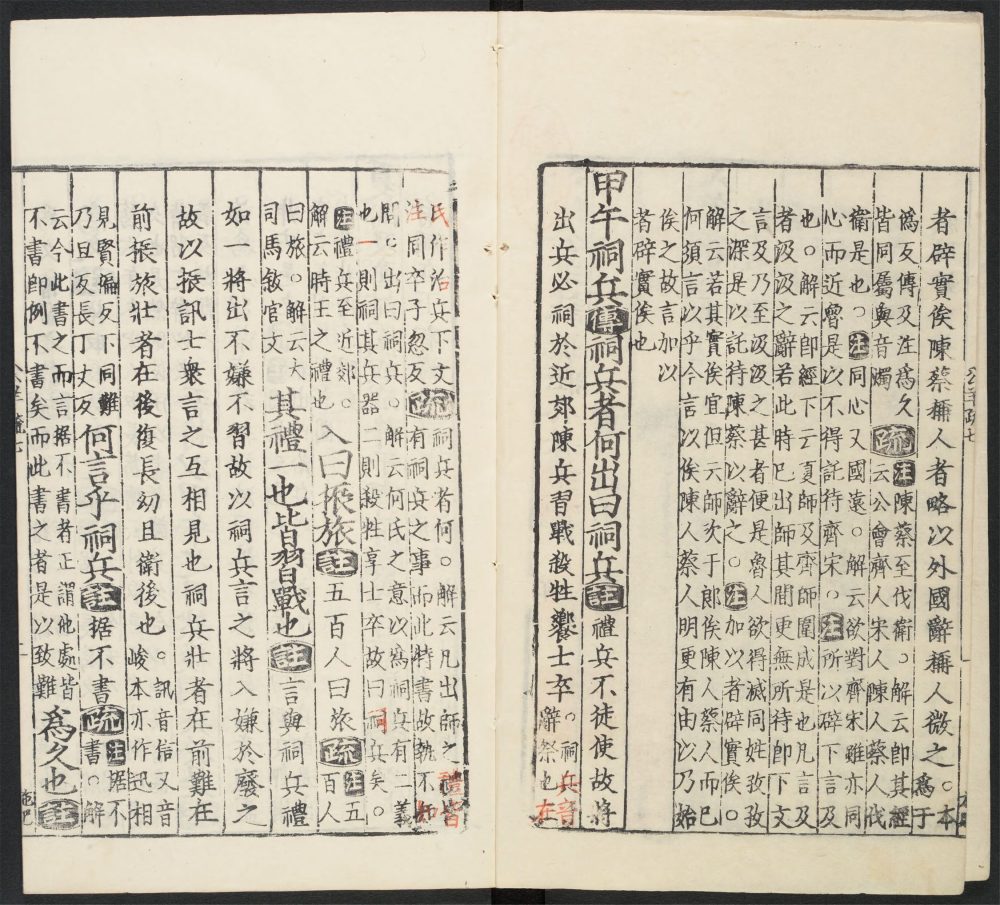 者辟實俟陳蔡稱人者略以外國辭稱人微之。本
爲于
爲反傳及注爲久疏注陳蔡至伐衛。解云即其經
皆同屬與音燭云公會齊人宋人陳人蔡人伐
衛是也。注同心又國遠。解云欲對齊宋雖亦同
心而近魯是以不得託待齊宋。注所以辟下言及
也。解云即經下云夏師及齊師圍成是也凡言及
者汲汲之辭若此時已出師其間更無所待即下文
言及乃至汲汲之甚者便是魯人欲得滅同姓孜孜
之深是以託待陳蔡以辭之。注加以者辟實俟。
解云若其實俟宜但云師次于郎俟陳人蔡人而已
何須言以乎今言以俟陳人蔡人明更有由以乃始
俟之故言加以
者辟實俟也
甲午祠兵傳祠兵者何出曰祠兵註禮兵不徒使故將
出兵必祠於近郊陳兵習戰殺牲饗士卒。祠兵音
辭祭也在
氏作治兵下文疏祠兵者何。解云凡出師之禮皆
注同卒子忽反有祠兵之事而此特書故執不知
問。出曰祠兵。解云何氏之意以爲祠兵有二義
也一則祠其兵器二則殺牲享士卒故曰祠兵矣。
注禮兵至近郊。
解云時王之禮也入曰振旅註五百人曰旅疏注五
百人
曰旅。解云大
司馬敘官文其禮一也皆習戰也註言與祠兵禮
如一將出不嫌不習故以祠兵言之將入嫌於廢之
故以振訊士衆言之互相見也祠兵壯者在前難在
前振旅壯者在後復長幼且衛後也。訊音信又音
峻本亦作迅相
見賢徧反下同難
乃且反長丁丈反何言乎祠兵註据不書疏注据不
書。解
云今此書之而言据不書者正謂他處皆
不書即例不書矣而此書之者是以致難爲久也註